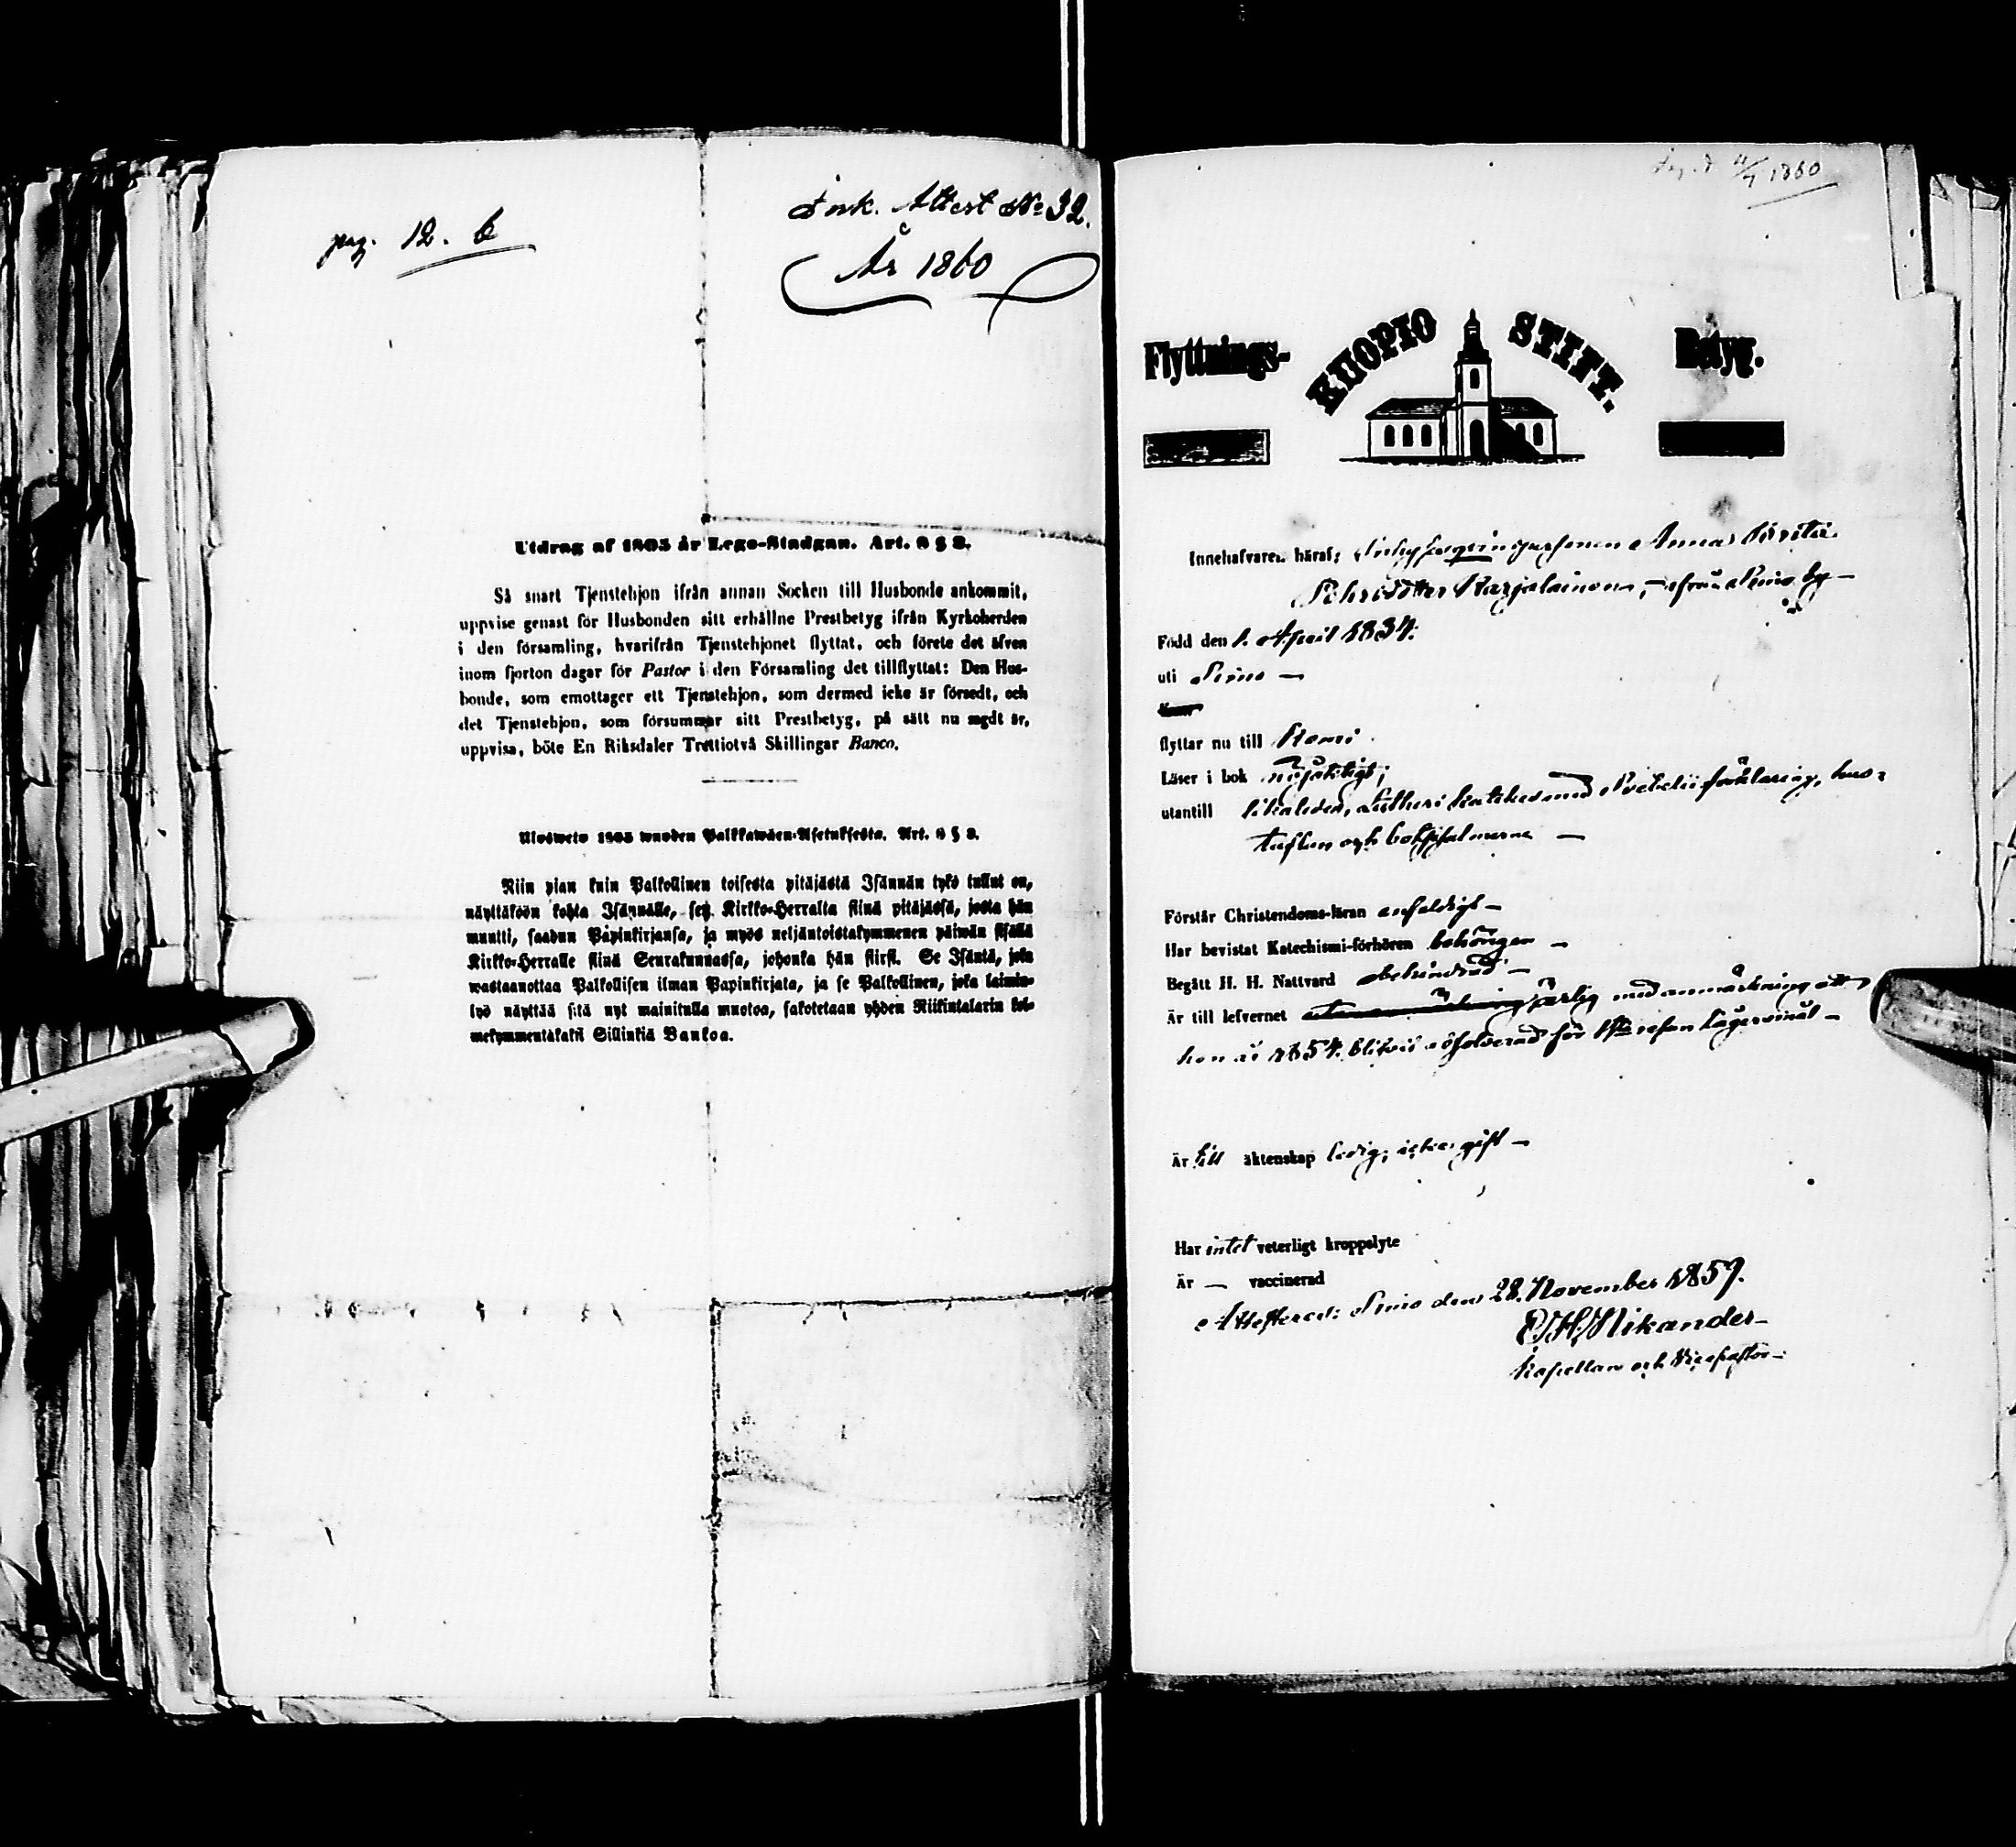 pag. 12. b
Ink. Attest No 32.
År 1860
Utdrag af 1805 år Lego-Stadgan. Art. 6 § 8.
Så snart Tjenstehjon ifrån annan Socken till Husbonde ankommit,
uppvise genast för Husbonden sitt erhållne Prestbetyg ifrån Kyrkoherden
i den församling, hvarifrån Tjenstehjonet flyttat, och förete det äfven
inom fjorton dagar för Pastor i den Församling det tillflyttat: Den Hus-
bonde, som emottager ett Tjenstehjon, som dermed icke är försedt, och
det Tjenstehjon, som försummar sitt Prestbetyg, på sätt nu sagdt är,
uppvisa, böte En Riksdaler Trettiotvå Skillingar Banco.
Ulosweto 1805 wuoden Palkkawäen-Asetuksesta. Art. 6 § 8.
Niin pian kuin Palkollinen toisesta pitäjästä Isännän tykö tullut on,
näyttäköön kohta Isännälle, sen Kirkko-Herralta siinä pitäjässä, josta hän
muutti, saadun Papinkirjansa, ja myös neljäntoistakymmenen päiwän sisällä
Kirkko-Herralle siinä Seurakunnassa, johonka hän siirsi. Se Isäntä, joka
wastaanottaa Palkollisen ilman Papinkirjata, ja se Palkollinen, joka laimin-
lyö näyttää sitä nyt mainitulla muotoa, sakotetaan yhden Riikintalarin kol-
mekymmentäkaksi Sillinkiä Bankoa.
1860
Flyttnings- KUOPIO STIFT. Betyg.
Innehafvaren häraf: Anna Brita
Pehrsdotter Karjalainen, ifrån Simo by
Född den 1. April 1834.
uti Simo
flyttar nu till Kemi.
Läser i bok nöjaktigt;
utantill Lilla lären, Lutheri Kateches med Svebelii förklaring, hus-
taflan och botpsalmerna
Förstår Christendoms-läran enfaldigt
Har bevistat Katechismi-förhören behörigen
Begått H. H. Nattvard obehindrad
Är till lefvernet ärlig med anmärkning att
hon år 1854 blifvit absolverad för 1sta resan lägersmål
Är till äktenskap ledig, icke gift
Har intet veterligt kroppslyte
Är — vaccinerad
Attesterad: Simo den 28. November 1859.
Nikander
Kapellan och Vicepastor